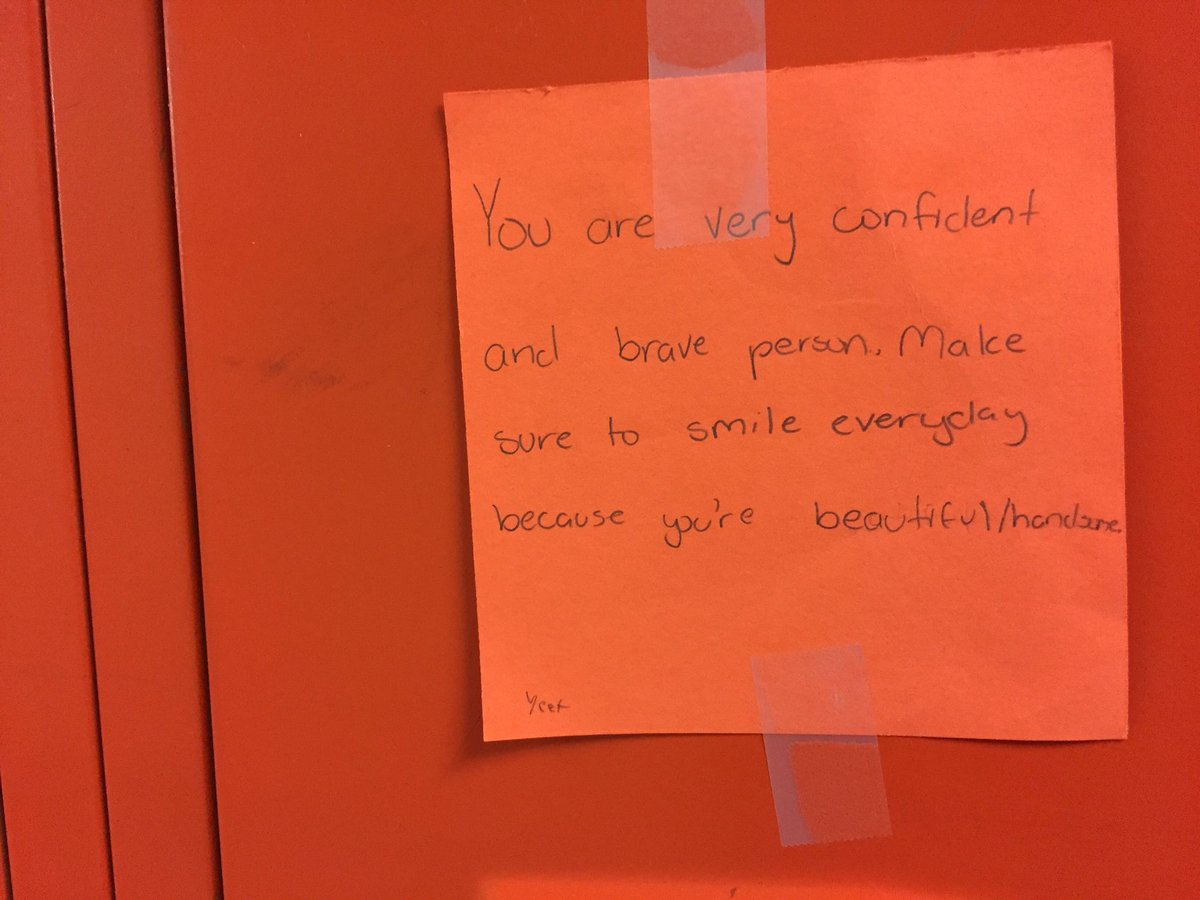 You are very confident
and brave person. Make
sure to smile everyday
because you're beautiful/handsome.